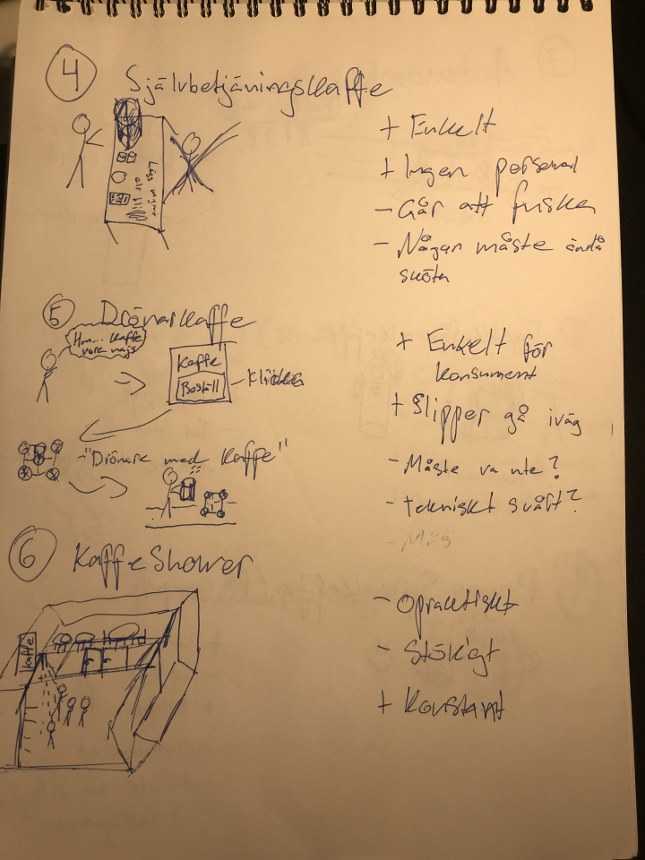 4 Självbetjäningskaffe
+ Enkelt
+ Ingen personal
- Går att fuska
- Någon måste ändå
sköta
5 Drönarkaffe
Hmm... kaffe
vore najs
Kaffe
Beställ
Klicka
"Drönare med kaffe"
+ Enkelt för
konsument
+ Slipper gå iväg
- Måste va ute?
- Tekniskt svårt?
6 Kaffe Shower
Kaffe
- Opraktiskt
- Stökigt
+ Konstant